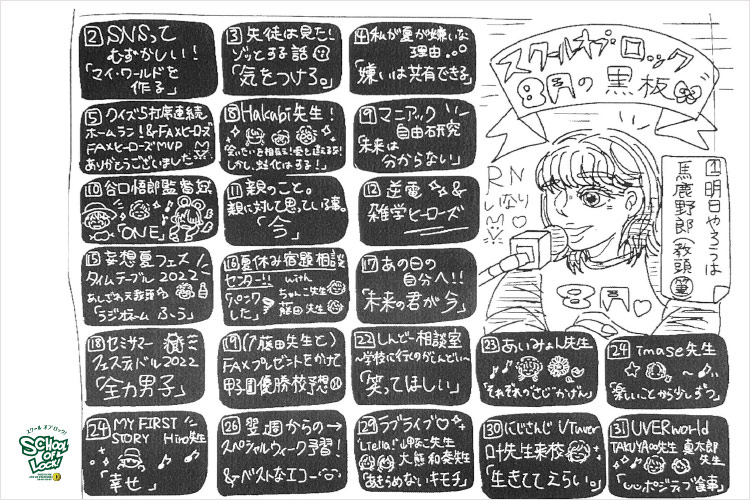 スクールオブ・ロック
8月の黒板
RN
いなり
①明日やろうは
馬鹿野郎 教頭
8月♡
②SNSって
むずかしい!
「マイ・ワールドを
作る」
③生徒は見た!
ゾッとする話
「気をつけろ。」
④私が夏が嫌いな
理由。。○
「嫌いは共有できる」
⑤クイズ5打席連続
ホームラン!&FAXヒーローズ
FAXヒーローズMVP
ありがとうございました
⑧Hakubi先生!
しかし、
する!」
⑨マニアック
自由研究
「未来は
分からない」
⑩谷口悟郎監督
「ONE」
⑪親のこと。
親に対して思っている事。
「今」
⑫逆電 &
雑学ヒーローズ
⑮妄想夏フェス
タイムテーブル2022
「ラジオネーム ふ〜う」
⑯夏休み宿題相談
センター!! with
ちゃんこ先生
した」
藤田先生
⑰あの日の
自分へ!!
「未来の君が今」
⑱セミサマー
フェスティバル2022
「全力男子」
⑲(7藤田先生と)
FAXプレゼントをかけて
甲子園優勝校予想
㉒しんどー相談室
〜学校に行くのがしんどい〜
「笑ってほしい」
㉓あいみょん先生
「それぞれのさじかげん」
㉔imase先生
「楽しいことから少しずつ」
㉔MY FIRST
STORY Hiro先生
「幸せ」
㉖翌週からの→
スペシャルウィーク予習!
&ベストなエコー
㉙ラブライブ♡
「Liella!」岬なこ先生
大熊和奏先生
「あきらめないキモチ」
㉚にじさんじ VTuver
叶先生来校
「生きててえらい。」
㉛UVERworld
TAKUYA∞先生 真太郎
先生
「いいポジティブ食事」
スクール オブ ロック!
SCHOOL
OF
LOCK!